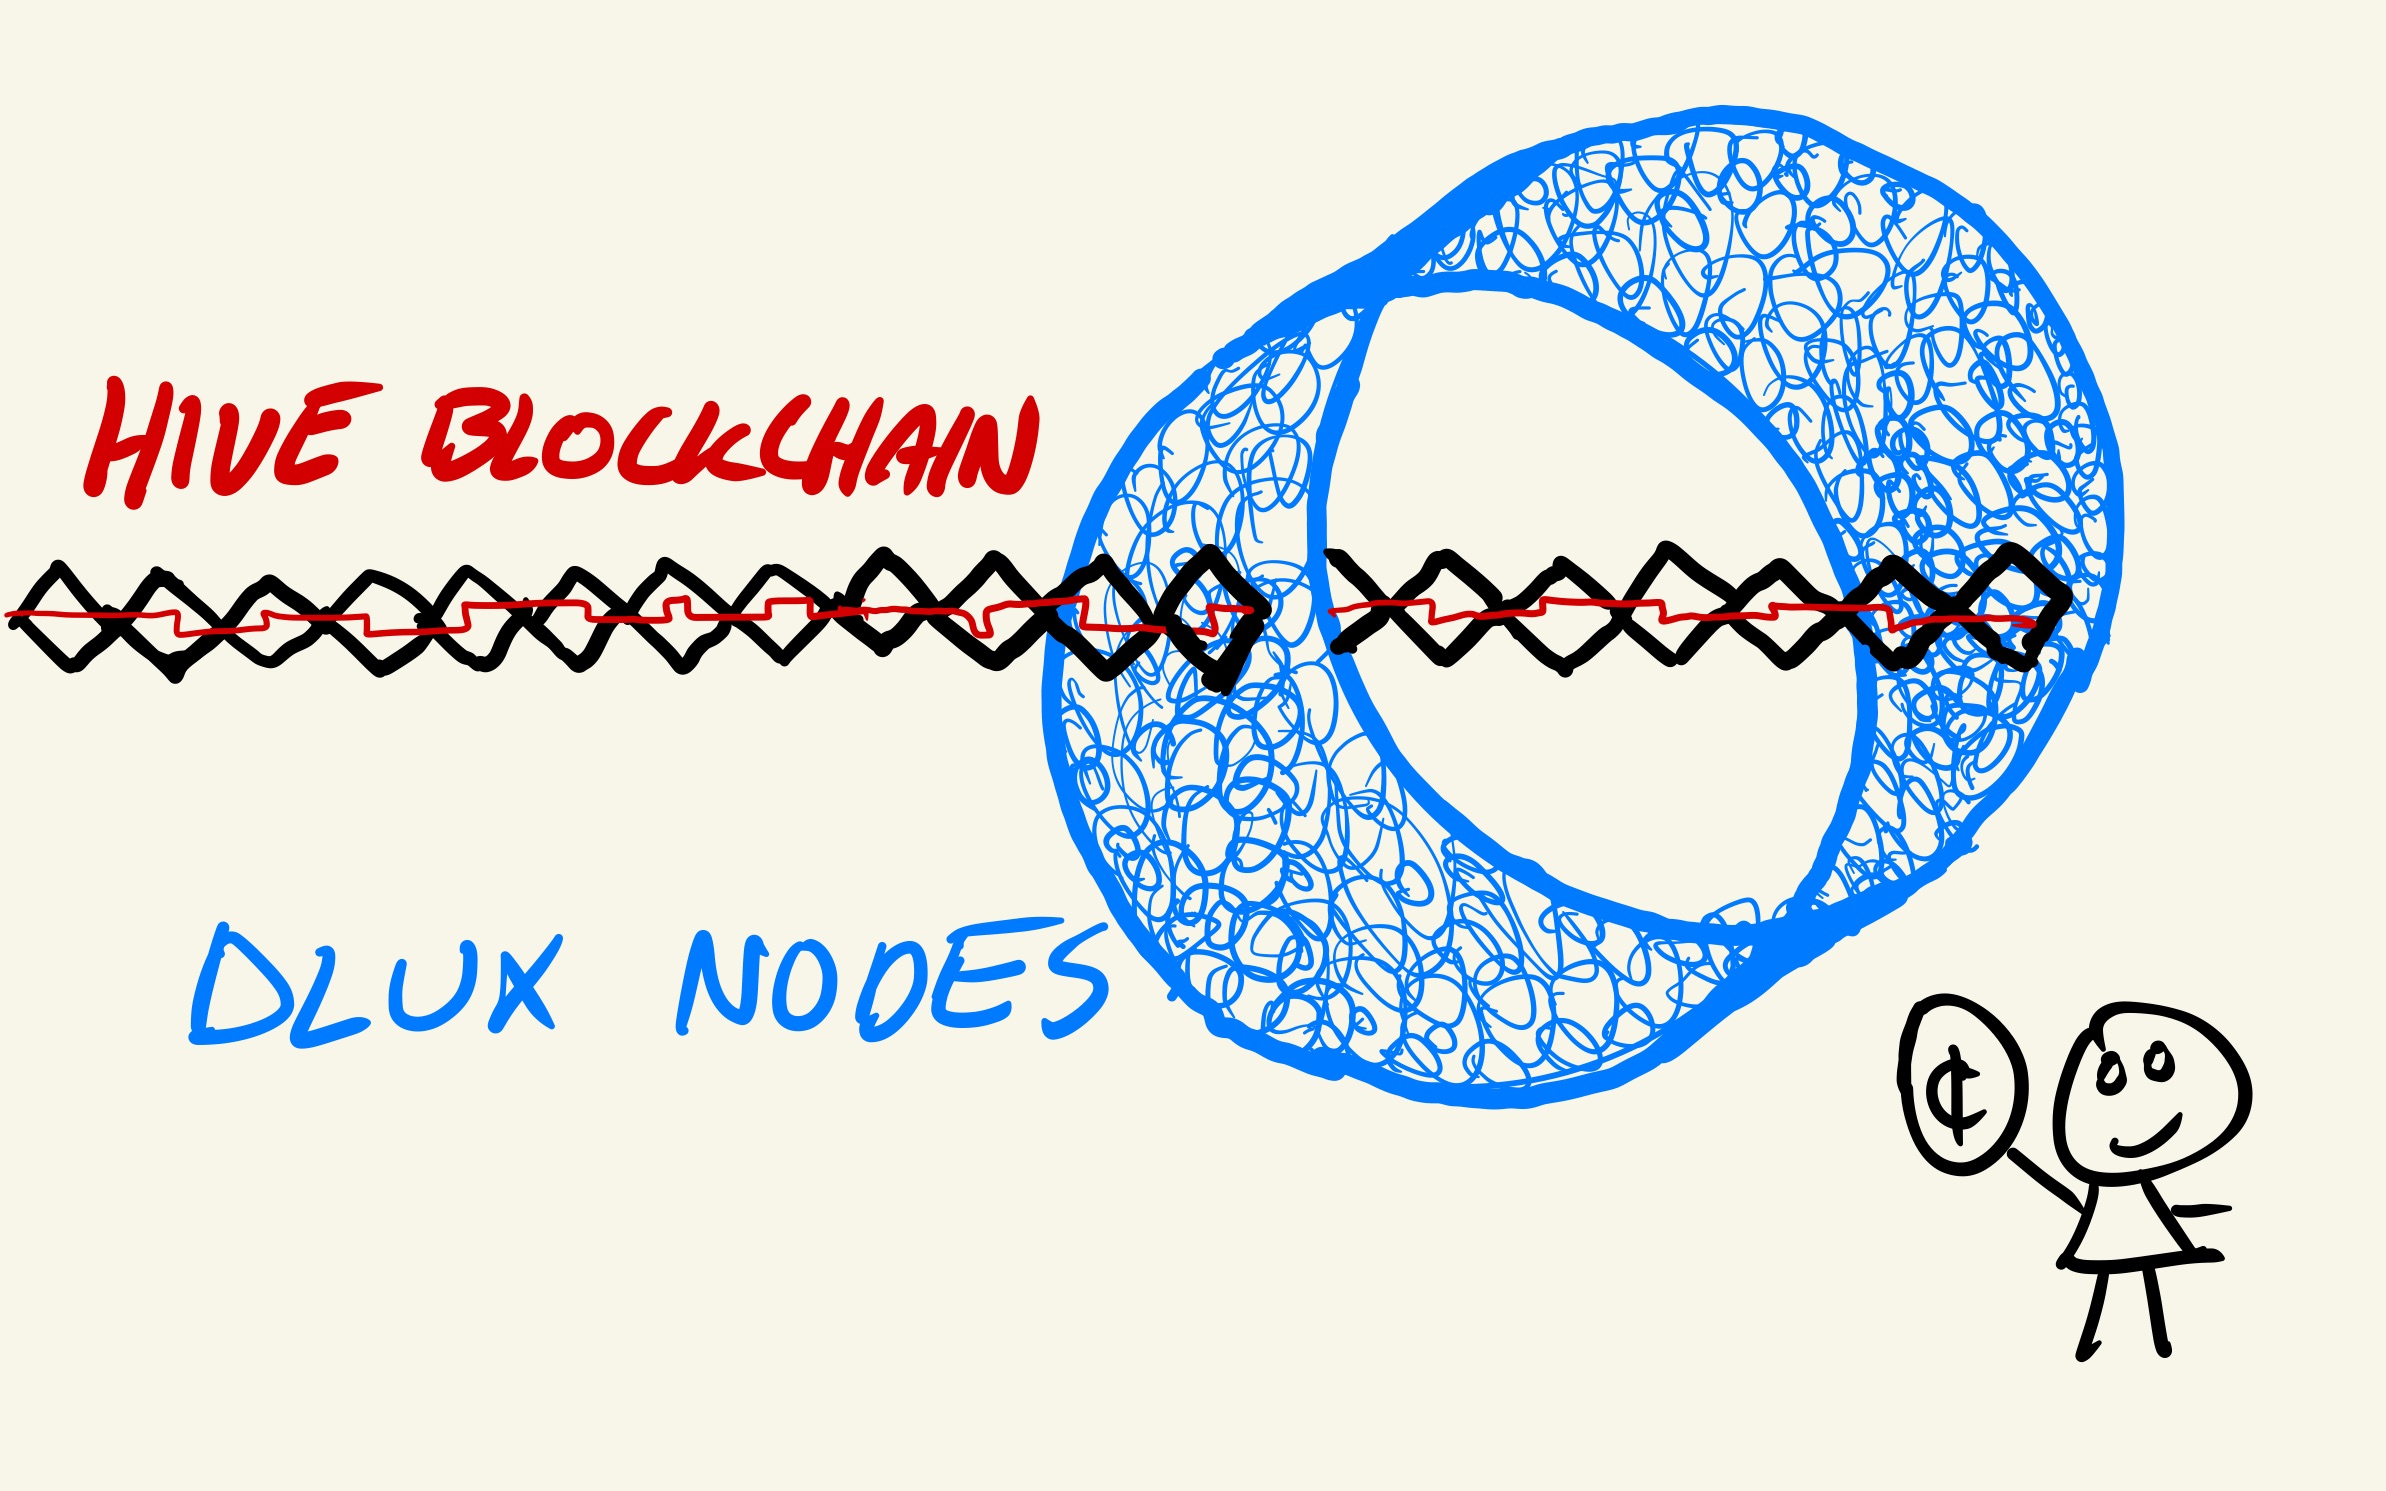 HIVE BLOCKCHAIN
DLUX NODES
¢